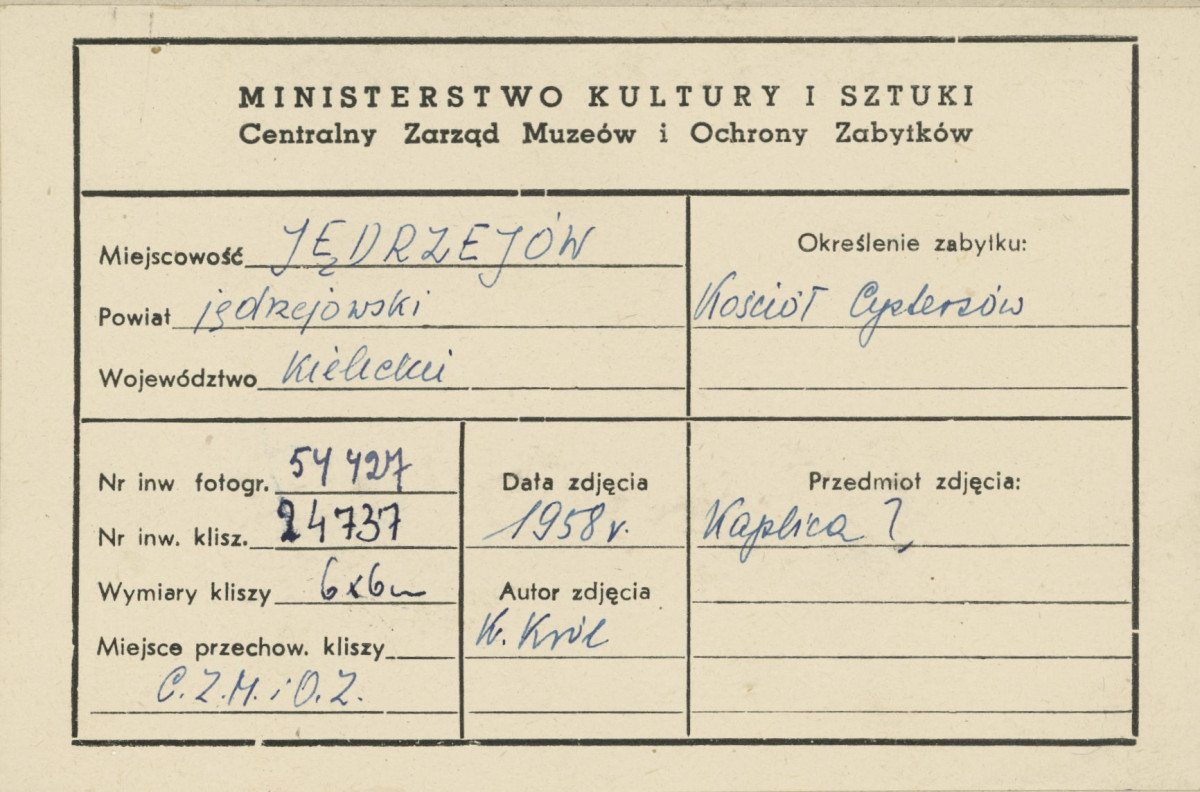 MINISTERSTWO KULTURY I SZTUKI
Centralny Zarząd Muzeów i Ochrony Zabytków
Miejscowość JĘDRZEJÓW
Powiat jędrzejowski
Województwo Kieleckie
Określenie zabytku:
Kościół Cystersów
Nr inw fotogr. 54 427
Nr inw. klisz. 24737
Wymiary kliszy 6x6
Miejsce przechow. kliszy
C.Z.M. i O.Z.
Data zdjęcia
1958 r.
Autor zdjęcia
K. Król
Przedmiot zdjęcia:
Kaplica ?